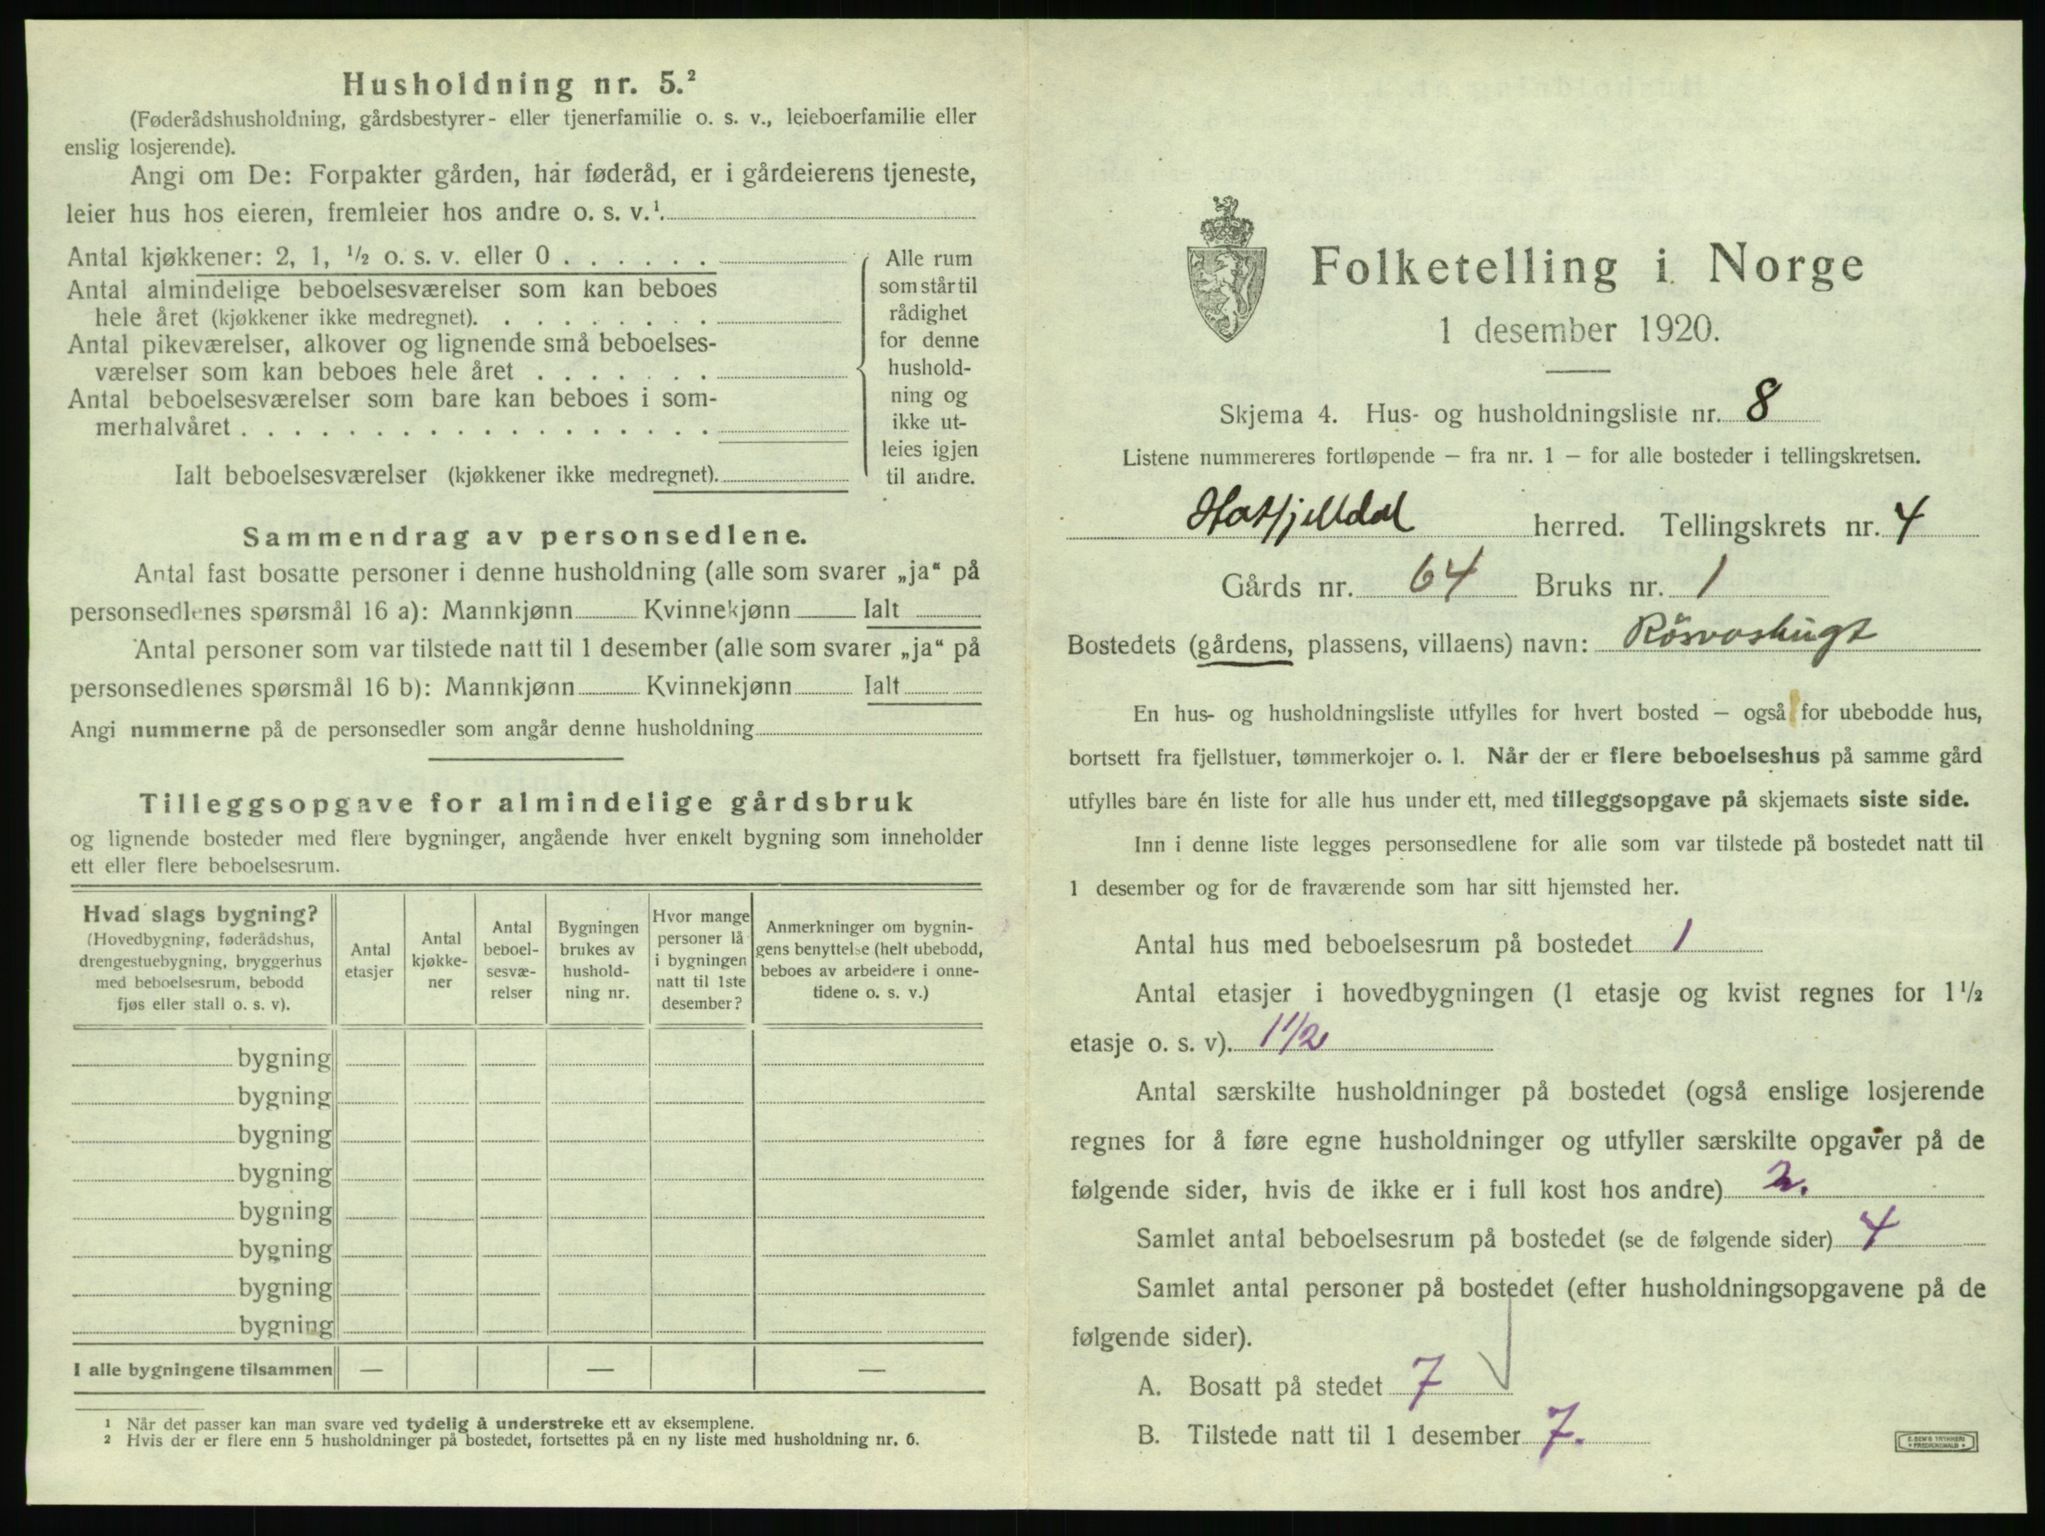 Husholdning nr. 5.²
(Føderådshusholdning, gårdsbestyrer- eller tjenerfamilie o. s. v., leieboerfamilie eller
enslig losjerende).
Angi om De: Forpakter gården, har føderåd, er i gårdeierens tjeneste,
leier hus hos eieren, fremleier hos andre o. s. v.¹
Antal kjøkkener: 2, 1, ½ o. s. v. eller 0 . . . . . .
Antal almindelige beboelsesværelser som kan beboes
hele året (kjøkkener ikke medregnet). . . . . . . . .
Antal pikeværelser, alkover og lignende små beboelses-
værelser som kan beboes hele året . . . . . . .
Antal beboelsesværelser som bare kan beboes i som-
merhalvåret . . . . . . . . . . . . . . . . . .
Ialt beboelsesværelser (kjøkkener ikke medregnet).
Alle rum
som står til
rådighet
for denne
hushold-
ning og
ikke ut-
leies igjen
til andre.
Sammendrag av personsedlene.
Antal fast bosatte personer i denne husholdning (alle som svarer „ja“ på
personsedlenes spørsmål 16 a): Mannkjønn Kvinnekjønn Ialt
Antal personer som var tilstede natt til 1 desember (alle som svarer „ja“ på
personsedlenes spørsmål 16 b): Mannkjønn Kvinnekjønn Ialt
Angi nummerne på de personsedler som angår denne husholdning
Tilleggsopgave for almindelige gårdsbruk
og lignende bosteder med flere bygninger, angående hver enkelt bygning som inneholder
ett eller flere beboelsesrum.
Hvad slags bygning?
(Hovedbygning, føderådshus,
drengestuebygning, bryggerhus
med beboelsesrum, bebodd
fjøs eller stall o. s. v).
Antal
etasjer
Antal
kjøkke-
ner
Antal
beboel-
sesvæ-
relser
Bygningen
brukes av
hushold-
ning nr.
Hvor mange
personer lå
i bygningen
natt til 1ste
desember?
Anmerkninger om bygnin-
gens benyttelse (helt ubebodd,
beboes av arbeidere i onne-
tidene o. s. v.)
bygning
bygning
bygning
bygning
bygning
bygning
bygning
bygning
I alle bygningene tilsammen — — —
¹ Når det passer kan man svare ved tydelig å understreke ett av eksemplene.
² Hvis der er flere enn 5 husholdninger på bostedet, fortsettes på en ny liste med husholdning nr. 6.
Folketelling i Norge
1 desember 1920.
Skjema 4. Hus- og husholdningsliste nr. 8
Listene nummereres fortløpende – fra nr. 1 – for alle bosteder i tellingskretsen.
Hatfjelldal herred. Tellingskrets nr. 4
Gårds nr. 64 Bruks nr. 1
Bostedets (gårdens, plassens, villaens) navn: Røsvashugt
En hus- og husholdningsliste utfylles for hvert bosted – også for ubebodde hus,
bortsett fra fjellstuer, tømmerkojer o. l. Når der er flere beboelseshus på samme gård
utfylles bare én liste for alle hus under ett, med tilleggsopgave på skjemaets siste side.
Inn i denne liste legges personsedlene for alle som var tilstede på bostedet natt til
1 desember og for de fraværende som har sitt hjemsted her.
Antal hus med beboelsesrum på bostedet 1
Antal etasjer i hovedbygningen (1 etasje og kvist regnes for 1½
etasje o. s. v). 1 1/2
Antal særskilte husholdninger på bostedet (også enslige losjerende
regnes for å føre egne husholdninger og utfyller særskilte opgaver på de
følgende sider, hvis de ikke er i full kost hos andre) 2.
Samlet antal beboelsesrum på bostedet (se de følgende sider) 4
Samlet antal personer på bostedet (efter husholdningsopgavene på de
følgende sider).
A. Bosatt på stedet 7
B. Tilstede natt til 1 desember 7.